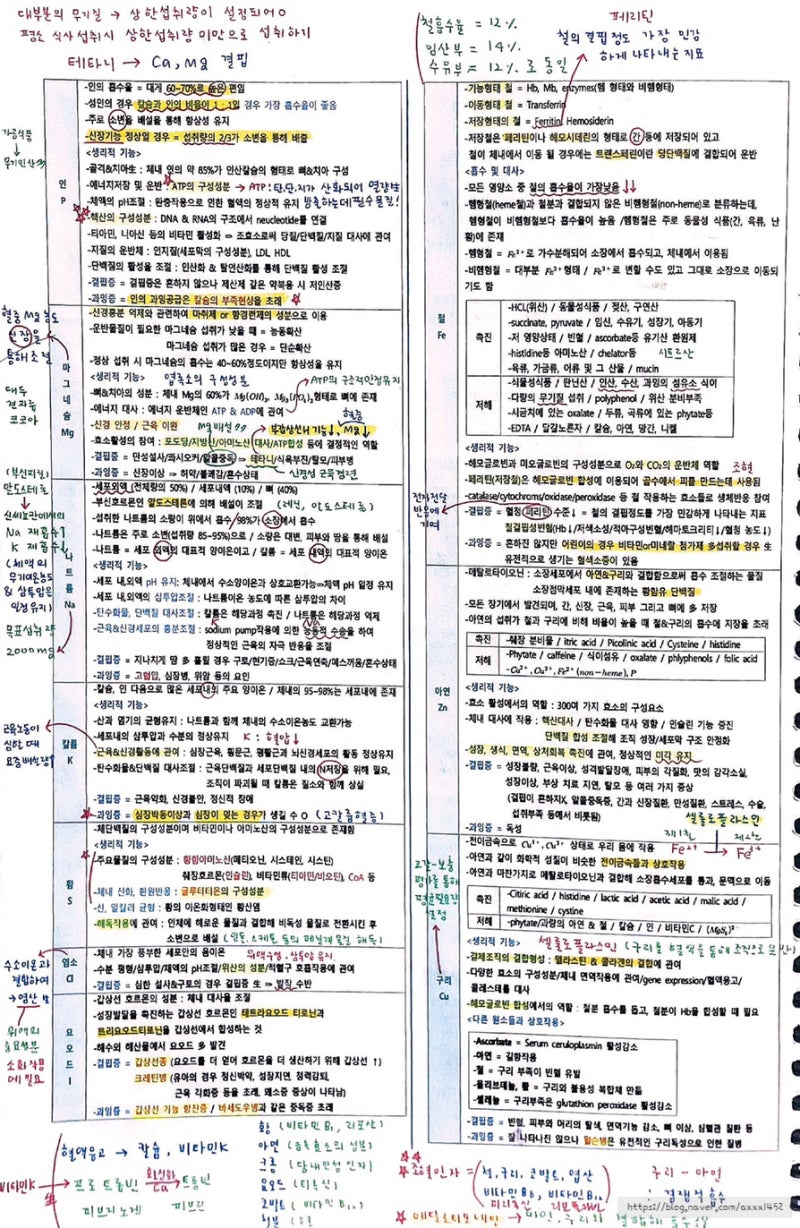 대부분의 무기질 → 상한섭취량이 설정되어O
평소 식사섭취시 상한섭취량 미만으로 섭취하기
테타니 → Ca, Mg 결핍
철흡수율 = 12%
임산부 = 14%
수유부 = 12% 로 동일
페리틴
철의 결핍정도 가장 민감
하게 나타내는 지표
인
P
-인의 흡수율 = 대게 60~70%로 높은 편임
-성인의 경우 칼슘과 인의 비율이 1 : 1일 경우 가장 흡수율이 좋음
-주로 소변을 배설을 통해 항상성 유지
-신장기능 정상일 경우 = 섭취량의 2/3가 소변을 통해 배출
<생리적 기능>
-골격&치아生 : 체내 인의 약 85%가 인산칼슘의 형태로 뼈&치아 구성
-에너지저장 및 운반 ATP의 구성성분 → ATP : 탄.단.지가 산화되어 열량生
-체액의 pH조절 : 완충작용으로 인한 혈액의 정상적 유지
-핵산의 구성성분 : DNA & RNA의 구조에서 neucleotide를 연결
-티아민, 니아신 등의 비타민 활성화 ⇒ 조효소로써 당질/단백질/지질 대사에 관여
-지질의 운반체 : 인지질(세포막의 구성성분), LDL HDL
-단백질의 활성을 조절 : 인산화 & 탈인산화를 통해 단백질 활성 조절
-결핍증 = 결핍증은 흔하지 않으나 제산제 같은 약복용 시 저인산증
-과잉증 = 인의 과잉공급은 칼슘의 부족현상을 초래
혈중 Mg 농도
신장을
통해 조절
대두
견과류
코코아
마그네슘
Mg
-신경흥분 억제와 관련하여 마취제 or 항경련제의 성분으로 이용
-운반물질이 필요한 마그네슘 섭취가 낮을 때 = 능동확산
마그네슘 섭취가 많은 경우 = 단순확산
-정상 섭취 시 마그네슘의 흡수는 40~60%정도이지만 항상성을 유지
<생리적 기능> 엽록소의 구성성분
ATP의 구조적안정유지
-뼈&치아의 성분 : 체내 Mg의 60%가 Mg(OH)₂, Mg₃(PO₄)₂형태로 뼈에 존재
-에너지 대사 : 에너지 운반체인 ATP & ADP에 관여
-신경 안정 / 근육 이완
-효소활성의 참여 : 포도당/지방산/아미노산 대사/ATP합성 등에 결정적인 역할
-결핍증 = 만성설사/콰시오커/알콜중독 ⇒ 테타니/식욕부진/탈모/피부병
-과잉증 = 신장이상 → 허약/불쾌감/혼수상태
신경성 근육경련
나트륨
Na
-세포외액(전체량의 50%) / 세포내액 (10%) / 뼈 (40%)
-부신호르몬인 알도스테론에 의해 배설이 조절 (레닌, 알도스테론)
-섭취한 나트륨의 소량이 위에서 흡수/98%가 소장에서 흡수
-나트륨은 주로 소변(섭취량 85~95%으로 / 소량은 대변, 피부와 땀을 통해 배설
-나트륨 = 세포 외액의 대표적 양이온이고 / 칼륨 = 세포 내액의 대표적 양이온
<생리적 기능>
-세포 내.외액 pH 유지: 체내에서 수소양이온과 상호교환가능⇒체액 pH 일정 유지
-세포 내.외액의 삼투압조절 : 나트륨이온 농도에 따른 삼투압의 차이
-탄수화물, 단백질 대사조절 : 칼륨은 해당과정 촉진 / 나트륨은 해당과정 억제
-근육&신경세포의 흥분조절 : sodium pump작용에 의한 능동적 수송을 하여
정상적인 근육의 자극 반응을 조절
-결핍증 = 지나치게 땀 多 흘릴 경우 구토/현기증/쇼크/근육연축/메스꺼움/혼수상태
-과잉증 = 고혈압, 심장병, 위암 등의 요인
목표섭취량
2000mg
칼륨
K
-칼슘, 인 다음으로 많은 세포내의 주요 양이온 / 체내의 95~98%는 세포내에 존재
<생리적 기능>
-산과 염기의 균형유지 : 나트륨과 함께 체내의 수소이온농도 교환가능
-세포내의 삼투압과 수분의 정상유지 K : 혈압↓
-근육&신경활동에 관여 : 심장근육, 횡문근, 평활근과 뇌신경세포의 활동 정상유지
-탄수화물&단백질 대사조절 : 근육단백질과 세포단백질 내의 N저장을 위해 필요,
조직이 파괴될 때 칼륨은 질소와 함께 상실
-결핍증 = 근육약화, 신경불안, 정신적 장애
-과잉증 = 심장박동이상과 심장이 멎는 경우가 생길 수 O (고칼륨혈증)
황
S
-체단백질의 구성성분이며 비타민이나 아미노산의 구성성분으로 존재함
<생리적 기능>
-주요물질의 구성성분 : 황함아미노산(메티오닌, 시스테인, 시스틴)
췌장호르몬(인슐린), 비타민류(티아민/비오틴), CoA 등
-체내 산화, 환원반응 : 글루타티온의 구성성분
-산, 알칼리 균형 : 황의 이온화형태인 황산염
-해독작용에 관여 : 인체에 해로운 물질과 결합해 비독성 물질로 전환시킨 후
소변으로 배설
염소
Cl
-체내 가장 풍부한 세포안의 음이온
-수분 평형/삼투압/체액의 pH조절/위산의 성분/적혈구 호흡작용에 관여
-결핍증 = 심한 설사&구토의 경우 결핍증 生 ⇒ 발작 수반
수소이온과
결합하여
→ 염산 生
위액의
중요성분
소화작용
에 필요
요오드
I
-갑상선 호르몬의 성분 : 체내 대사율 조절
-성장발달을 촉진하는 갑상선 호르몬인 테트라요오드 티로닌과
트리요오드티로닌을 갑상선에서 합성하는 것
-해수와 해산물에서 요오드 多 발견
-결핍증 = 갑상선종 (요오드를 더 얻어 호르몬을 더 생산하기 위해 갑상선 ↑)
크레틴병 (유아의 경우 정신박약, 성장지연, 청력감퇴,
근육 각화증 등을 초래, 왜소증 증상이 나타남)
-과잉증 = 갑상선 기능 항진증 / 바세도우병과 같은 중독증 초래
혈액응고 → 칼슘, 비타민K
비타민K → 프로트롬빈 → Ca 트롬빈
피브리노겐 피브린
황 (비타민 B₁, 리포산)
아연 (
크롬 (당내인성인자)
요오드 (티록신)
코발트 (비타민 B₁₂)
철
Fe
-기능형태 철 = Hb, Mb, enzymes(헴 형태와 비헴형태)
-이동형태 철 = Transferrin
-저장형태의 철 = Ferritin, Hemosiderin
-저장철은 페리틴이나 헤모시데린의 형태로 간 등에 저장되어 있고
철이 체내에서 이동 될 경우에는 트랜스페린이란 당단백질에 결합되어 운반
<흡수 및 대사>
-모든 영양소 중 철의 흡수율이 가장낮음 ↓↓
-헴형철(heme철)과 철분과 결합되지 않은 비헴형철(non-heme)로 분류하는데,
헴형철이 비헴형철보다 흡수율이 높음 /헴형철은 주로 동물성 식품(간, 육류, 난
황)에 존재
-헴형철 = Fe²⁺로 가수분해되어 소장에서 흡수되고, 체내에서 이용됨
-비헴형철 = 대부분 Fe³⁺형태 / Fe²⁺로 변할 수도 있고 그대로 소장으로 이동되
기도 함
촉진
-HCL(위산) / 동물성식품 / 젖산, 구연산
-succinate, pyruvate / 임신, 수유기, 성장기, 아동기
-저 영양상태 / 빈혈 / ascorbate등 유기산 환원제
-histidine등 아미노산 / chelator등 시트르산
-육류, 가금류, 어류 및 그 산물 / mucin
저해
-식물성식품 / 탄닌산 / 인산, 수산, 과잉의 섬유소 식이
-다량의 무기질 섭취 / polyphenol / 위산 분비부족
-시금치에 있는 oxalate / 두류, 곡류에 있는 phytate등
-EDTA / 달걀노른자 / 칼슘, 아연, 망간, 니켈
<생리적 기능>
-헤모글로빈과 미오글로빈의 구성성분으로 O₂와 CO₂의 운반체 역할
-페리틴(저장철)은 헤모글로빈 합성에 이용되어 골수에서 피를 만드는데 사용됨 조혈
-catalase/cytochroms/oxidase/peroxidase 등 철 작용하는 효소들로 생체반응 참여
-결핍증 = 혈청 페리틴 수준↓ = 철의 결핍정도를 가장 민감하게 나타내는 지표
철결핍성빈혈(Hb↓/저색소성/적아구성빈혈/헤마토크리티↓/혈청 농도↓)
-과잉증 = 흔하진 않지만 어린이의 경우 비타민or미네랄 첨가제 多섭취할 경우 生
유전적으로 생기는 혈색소증이 있음
아연
Zn
-메탈로타이오닌 : 소장세포에서 아연&구리와 결합함으로써 흡수 조절하는 물질
소장점막세포 내에 존재하는 황함유 단백질
-모든 장기에서 발견되며, 간, 신장, 근육, 피부 그리고 뼈에 多 저장
-아연의 섭취가 철과 구리에 비해 비율이 높을 때 철&구리의 흡수에 지장을 초래
촉진 -췌장 분비물 / itric acid / Picolinic acid / Cysteine / histidine
저해 -Phytate / caffeine / 식이섬유 / oxalate / phlyphenols / folic acid
-Ca²⁺, Cu²⁺, Fe²⁺(non-heme), P
<생리적 기능>
-효소 활성에서의 역할 : 300여 가지 효소의 구성요소
-체내 대사에 작용 : 핵산대사 / 탄수화물 대사 영향 / 인슐린 기능 증진
단백질 합성 조절해 조직 성장/세포막 구조 안정화
-성장, 생식, 면역, 상처회복 촉진에 관여, 정상적인 미각 유지
-결핍증 = 성장불량, 근육이상, 성적발달장애, 피부의 각질화, 맛의 감각소실,
성장이상, 부상 치료 지연, 탈모 등 여러 가지 증상
(결핍이 흔하지X, 알콜중독증, 간과 신장질환, 만성질환, 스트레스, 수술,
섭취부족 등에서 비롯됨)
-과잉증 = 독성
셀룰로플라스민
제1철 제2철
Fe²⁺ → Fe³⁺
구리
Cu
-전이금속으로 Cu¹⁺, Cu²⁺ 상태로 우리 몸에 작용
-아연과 같이 화학적 성질이 비슷한 전이금속들과 상호작용
-아연과 마찬가지로 메탈로타이오닌과 결합해 소장흡수세포를 통과, 문맥으로 이동
촉진 -Citiric acid / histidine / lactic acid / acetic acid / malic acid /
methionine / cystine
저해 -phytate/과량의 아연 & 철 / 칼슘 / 인 / 비타민C /
<생리적 기능> 셀룰로플라스민 (구리를 혈액을 통해 조직으로 운반)
-결체조직의 결합형성 : 엘라스틴 & 콜라겐의 결합에 관여
-다양한 효소의 구성성분/체내 면역작용에 관여/gene expression/혈액응고/
콜레스테롤 대사
-헤모글로빈 합성에서의 역할 : 철분 흡수를 돕고, 철분이 Hb을 합성할 때 필요
<다른 원소들과 상호작용>
-Ascorbate = Serum ceruloplasmin 활성감소
-아연 = 길항작용
-철 = 구리 부족이 빈혈 유발
-몰리브데늄, 황 = 구리와 불용성 복합체 만듦
-셀레늄 = 구리부족은 glutathion peroxidase 활성감소
-결핍증 = 빈혈, 피부와 머리의 탈색, 면역기능 감소, 뼈 이상, 심혈관 질환 등
-과잉증 = 잘 나타나진 않으나 윌슨병은 유전적인 구리독성으로 인한 질병
조혈인자 = 철, 구리, 코발트, 엽산
비타민 B₆, 비타민 B₁₂
구리 - 아연
: 경쟁적 흡수
https://blog.naver.com/axxx1452